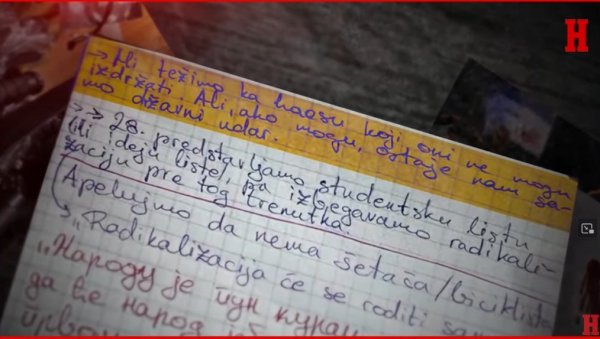 H
→ Mi težimo ka haosu koji oni ne mogu
izdržati. Ali, ako mogu, ostaje nam sa-
mo državni udar.
→ 28. predstavljamo studentsku listu
(ili ideju liste), pa izbjegavamo radikali-
zaciju pre tog trenutka.
Apelujmo da nema šetača/biciklista
"Radikalizacija će se roditi sam
"Народу је пун курац
да ће народ
H